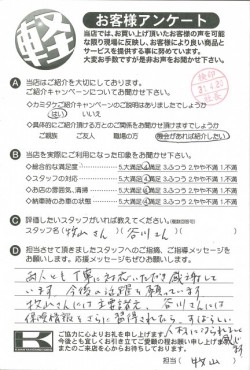 軽
お客様アンケート
当店では、お買い上げ頂いたお客様の声を可能
な限り現場に反映し、お客様により良い商品と
サービスを提供する事に努めています。
大変お手数ですが是非お声をお聞かせ下さい。
A 当店はご紹介を大切にしております。
ご紹介キャンペーンについてお聞かせ下さい。
◇カミタケご紹介キャンペーンのご説明はありましたでしょうか
はい いいえ
◇具体的にご紹介頂ける方とのご関係をお聞かせ頂けますでしょうか
ご親族 ご友人 職場の方 機会があれば紹介したい
B 当店を実際にご利用になった印象をお聞かせ下さい。
◇総合的な満足度 5.大満足 4.満足 3.ふつう 2.やや不満 1.不満
◇スタッフの対応 5.大満足 4.満足 3.ふつう 2.やや不満 1.不満
◇お店の雰囲気、清掃 5.大満足 4.満足 3.ふつう 2.やや不満 1.不満
◇納車時のお車の状態 5.大満足 4.満足 3.ふつう 2.やや不満 1.不満
C 評価したいスタッフがいれば教えてください。(複数回答可)
スタッフ名( 牧山さん )( 谷川さん )
D 担当させて頂きましたスタッフへのご指摘、ご指導メッセージを
お願いします。応援メッセージもぜひお願いします。
お二人とも丁寧に対応いただき感謝して
います。
谷川さんには
保険情報をさらに習得されたら、すばらしい
ご協力に心よりお礼を申し上げます。
今後とも宜しくお引き立てご愛顧の程お願い申し上げます。
またのご来店を心からお待ちしております。
担当( 牧山 )